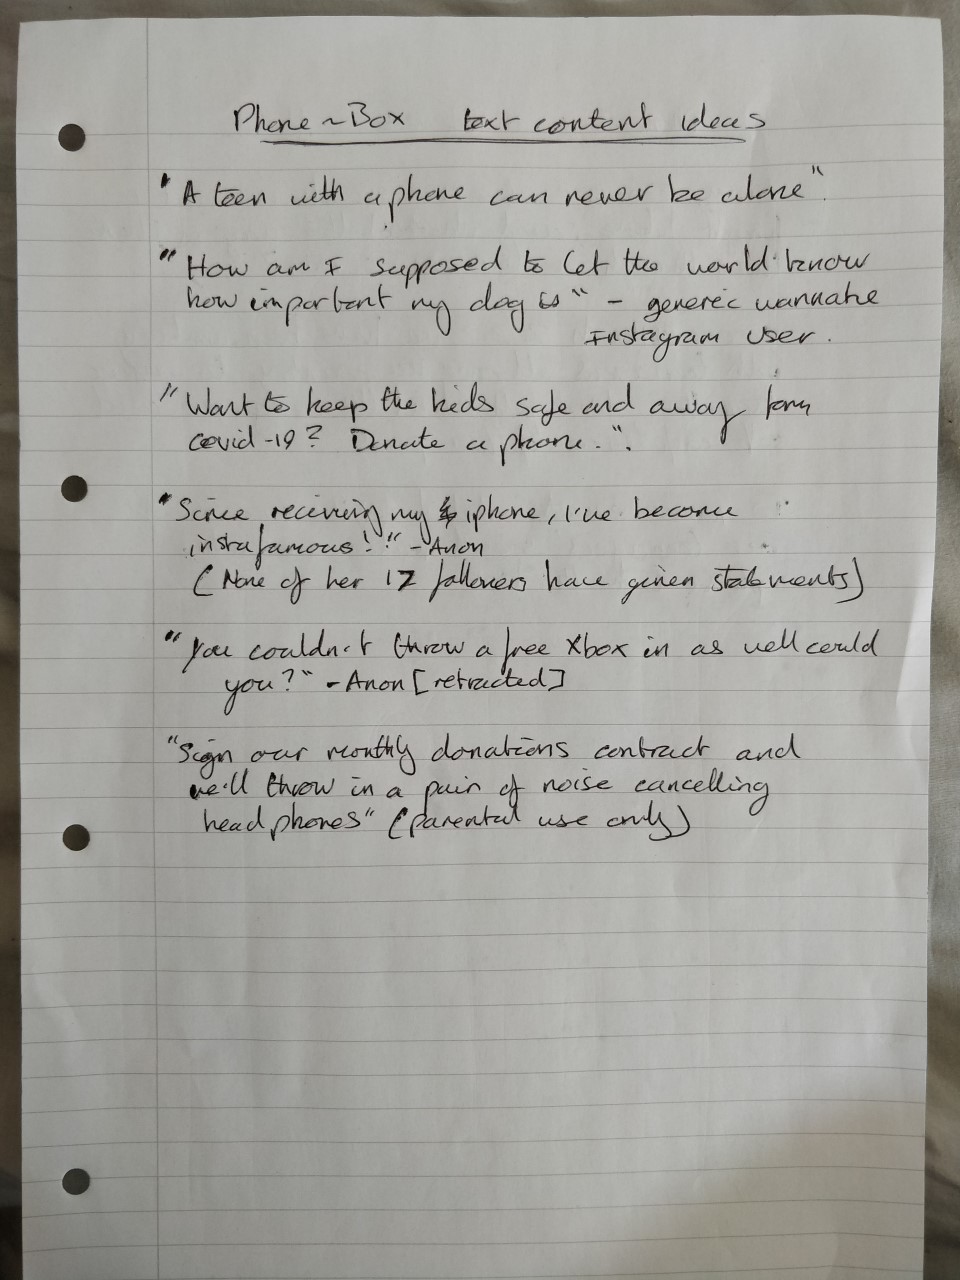 Phone~Box text content ideas
"A teen with a phone can never be alone".
"How am I supposed to let the world know
how important my dog is" - generic wannabe
Instagram user.
"Want to keep the kids safe and away
covid-19? Donate a phone.".
"Since receiving my iphone, I've become
instafamous!" - Anon
(None of her 17 followers have given statements)
"You couldn't throw a free Xbox in as well could
you?" - Anon [retracted]
"Sign our monthly donations contract and
we'll throw in a pair of noise cancelling
headphones" (parental use only)